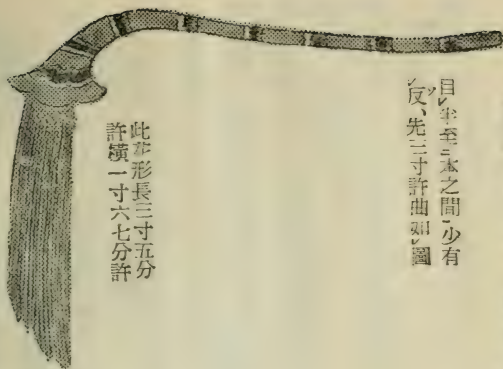 自レ半至二本之間一少有
レ反、先三寸許曲如レ圖
此形長三寸五分
許橫一寸六七分許